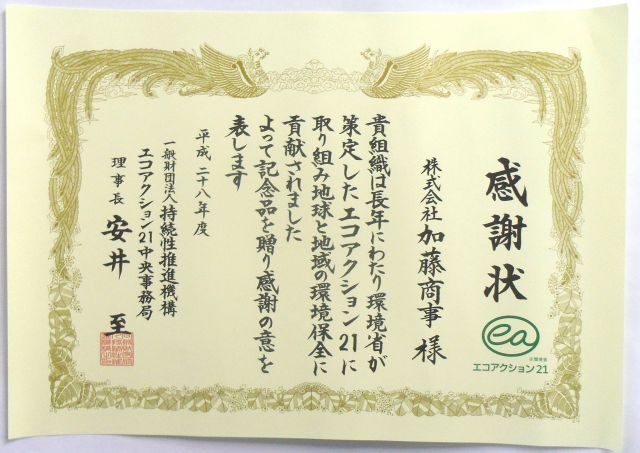 感謝状
株式会社 加藤商事 様
貴組織は長年にわたり環境省が
策定したエコアクション21に
取り組み地球と地域の環境保全に
貢献されました
よって記念品を贈り感謝の意を
表します
平成二十八年度
一般財団法人 持続性推進機構
エコアクション21中央事務局
理事長 安井 至
ea
エコアクション21